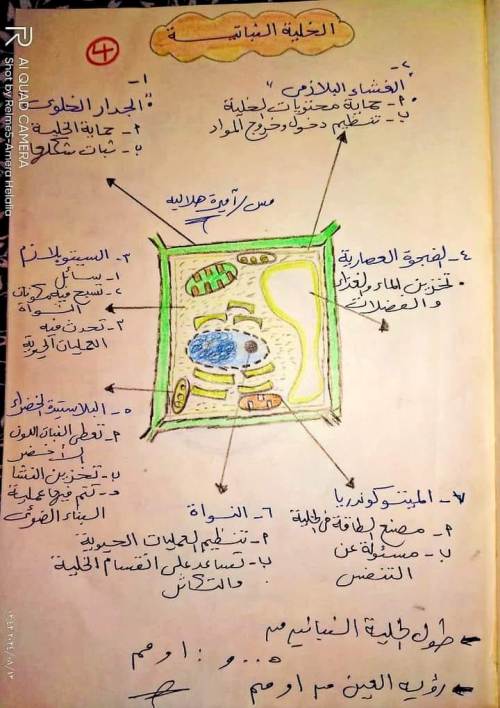 الخلية النباتية
٤
١-
"الجدار الخلوى"
٢- حماية الخلية
ب- ثبات شكلها
٢-
"الغشاء البلازمى"
٢- حماية محتويات الخلية
ب- تنظيم دخول وخروج المواد
مس/ أميرة هلاليه
٣- السيتوبلازم
١- سائل
٢- تسبح فيه مكونات
النواة
٣- تحدث فيه
العمليات الحيوية
٤- الفجوة العصارية
تخزين الماء والغذاء
والفضلات
٥- البلاستيدة الخضراء
٢- تعطى النبات اللون
الأخضر
ب- تخزين النشا
د- تتم فيها عملية
البناء الضوئى
٦- النواة
٢- تنظيم العمليات الحيوية
ب- تساعد على انقسام الخلية
والتكاثر
٧- الميتوكوندريا
٢- مصنع الطاقة فى الخلية
ب- مسئولة عن
التنفس
طول الخلية النباتية من
٠,٠٥ : ٠,١ مم
رؤية العين من ٠,١ مم
AI QUAD CAMERA
Shot by Realme5-Amera Helalia